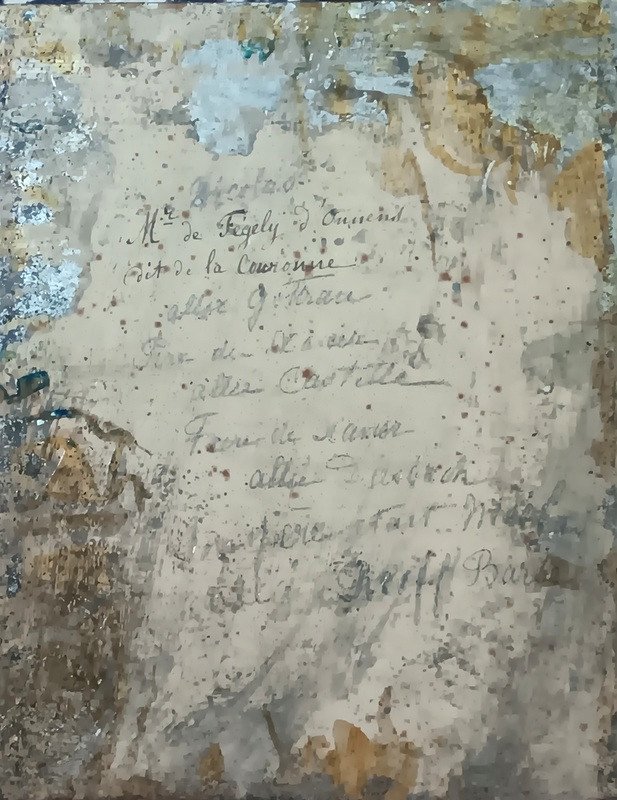 Nicolas
Mr. de Fegely d'Onnens
dit de la Couronne
allié Gottrau
Frere de Xavier
allié Castella
Frere de Xavier
allié
père était
Reiff